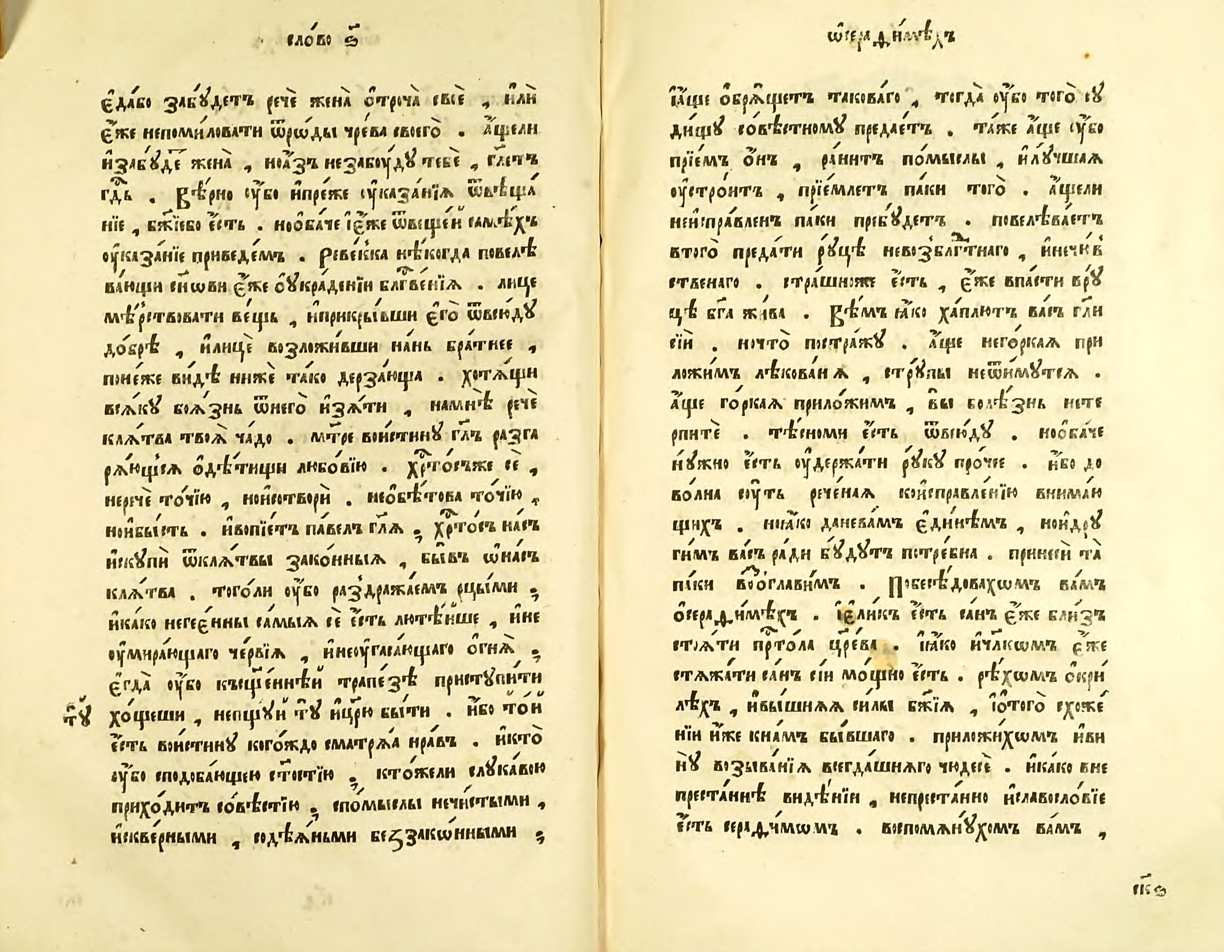 сло́во ѕ҃
є҆да́бо забꙋ́детъ речѐ жена̀ ѻ҆троча̀ своѐ , и҆лѝ
є҆́же непомиловати ѿрѡ́ды чре́ва своего̀ . а҆́щели
и҆забꙋ́де жена̀ , ноа҆́зъ незабоу́дꙋ тебѐ , гл҃етъ
гдⷭ҇ь . Вѣ́рно ᲂу҆́бо и҆пре́же ᲂу҆каза́нїѧ ѿвѣща́
нїе , бж҃їебо є҆́сть . нооба́че і҆є҆́же ѿвещей самѣ́хъ
ᲂу҆каза́нїе приведе́мъ . Реве́кка нѣ́когда повелѣ
ва́ющи сн҃ови є҆́же ѻ҆ᲂу҆краде́нїи блгⷭ҇ве́нїѧ . лице
мѣ́рствовати ве́щь , и҆прикры́вши є҆го̀ ѿвсю́дꙋ
до́брѣ , и҆лицѐ возложи́вши на́нь бра́тнее ,
поне́же ви́дѣ нижѐ та́ко дерза́юща . хотѧ́щи
всѧ́кꙋ боѧ́знь ѿнего̀ и҆зѧ́ти , намнѣ̀ речѐ
клѧ́тва твоѧ̀ ча́до . мт҃ре вои́стинꙋ гл҃ъ разга
рѧ́ющїѧсѧ ѻ҆дѣ́тищи любо́вїю . хрⷭ҇то́съже сѐ ,
неречѐ то́чїю , ноисотворѝ . необѣтова то́чїю ,
ноибы́сть . и҆вопїе́тъ па́велъ гл҃ѧ , хрⷭ҇то́съ на́съ
и҆скупѝ ѿклѧ́твы зако́нныѧ , бы́въ ѡ҆на́съ
клѧ́тва . того́ли ᲂу҆́бо раздража́емъ рцы́ми ,
и҆ка́ко негее́нны са́мыѧ сѐ є҆́сть лютѣ́йше , и҆не
ᲂу҆мира́ющаго че́рвїѧ , и҆неугаса́ющаго ѻ҆гнѧ̀ ,
є҆гда̀ ᲂу҆́бо късщ҃е́ннѣй трапе́зѣ пристꙋпи́ти
тꙋ̀
хо́щеши , непщꙋ́й тꙋ̀ и҆цр҃ю бы́ти . и҆́бо то́й
є҆́сть вои́стинꙋ кого́ждо сматрѧ́ѧ нра́въ . и҆кто̀
ᲂу҆́бо сподоба́ющею ст҃остїю , кто́жели слꙋка́вою
прихо́дитъ со́вѣстїю , спо́мыслы нечи́стыми ,
и҆скве́рными , содѣ́ѧньми беззако́нными ,
ѡ҆серафи́мѣхъ
і҆а҆́ще ѻ҆брѧ́щетъ такова́го , тогда̀ ᲂу҆́бо того̀ сꙋ
ди́щꙋ со́вѣстномꙋ предае́тъ . та́же а҆́ще ᲂу҆́бо
прїе́мъ ѻ҆́нъ , ра́нитъ по́мыслы , и҆лꙋ́чшаѧ
ᲂу҆стро́итъ , прїе́млетъ па́ки того̀ . а҆́щели
неиспра́вленъ па́ки пребꙋ́детъ . повелѣва́етъ
втого̀ преда́ти рꙋ́цѣ невозблгⷣтнаго , и҆нечꙋ́в
ственаго . стра́шноже є҆́сть , є҆́же впа́сти врꙋ
цѣ бг҃а жи́ва . Вѣ́мъ ꙗ҆́ко ха́плютъ ва́съ гл҃и
сїѝ . ночто̀ постра́жꙋ . а҆́ще него́ркаѧ при
ло́жимъ лѣкова́нїѧ , стрꙋ́пы неѿи́мꙋтсѧ .
а҆́ще го́ркаѧ прило́жимъ , вы̀ болѣ́знь нете
рпитѐ . тѣ́сноми є҆́сть ѿвсю́дꙋ . нооба́че
нꙋ́жно є҆́сть ᲂу҆держа́ти рꙋ́кꙋ про́чее . и҆́бо до
во́лна сꙋ́ть рече́наѧ коисправле́нїю внима́ю
щихъ . ноꙗ҆́ко дане́ва́мъ є҆ди́нѣмъ , ноидрꙋ
ги́мъ ва́съ ра́ди бꙋ́дꙋтъ потре́бна . принесѝ та̀
па́ки воѻ҆гла́вимъ . Побесѣ́довахѡмъ ва́мъ
ѻ҆серафи́мѣхъ . і҆є҆ли́къ є҆́сть са́нъ є҆́же бли́зъ
стоѧ́ти прⷭ҇то́ла цр҃е́ва . і҆ꙗ҆́ко и҆чл҃кѡмъ є҆́же
стѧжа́ти са́нъ сїи мо́щно є҆́сть . рѣ́хѡмъ ѻ҆кри
лѣ́хъ , и҆вы́шнѧѧ си́лы бж҃їѧ , і҆ѻ҆того̀ схоже́
нїи и҆́же кна́мъ бы́вшаго . приложи́хѡмъ и҆ви
нꙋ̀ возыва́нїѧ всегда́шнѧго чюдесѐ . и҆ка́ко вне
преста́ннѣ видѣ́нїи , непреста́нно и҆славосло́вїе
є҆́сть серафи́мѡмъ . воспомѧнꙋ́хомъ ва́мъ ,
сп҃ѕ